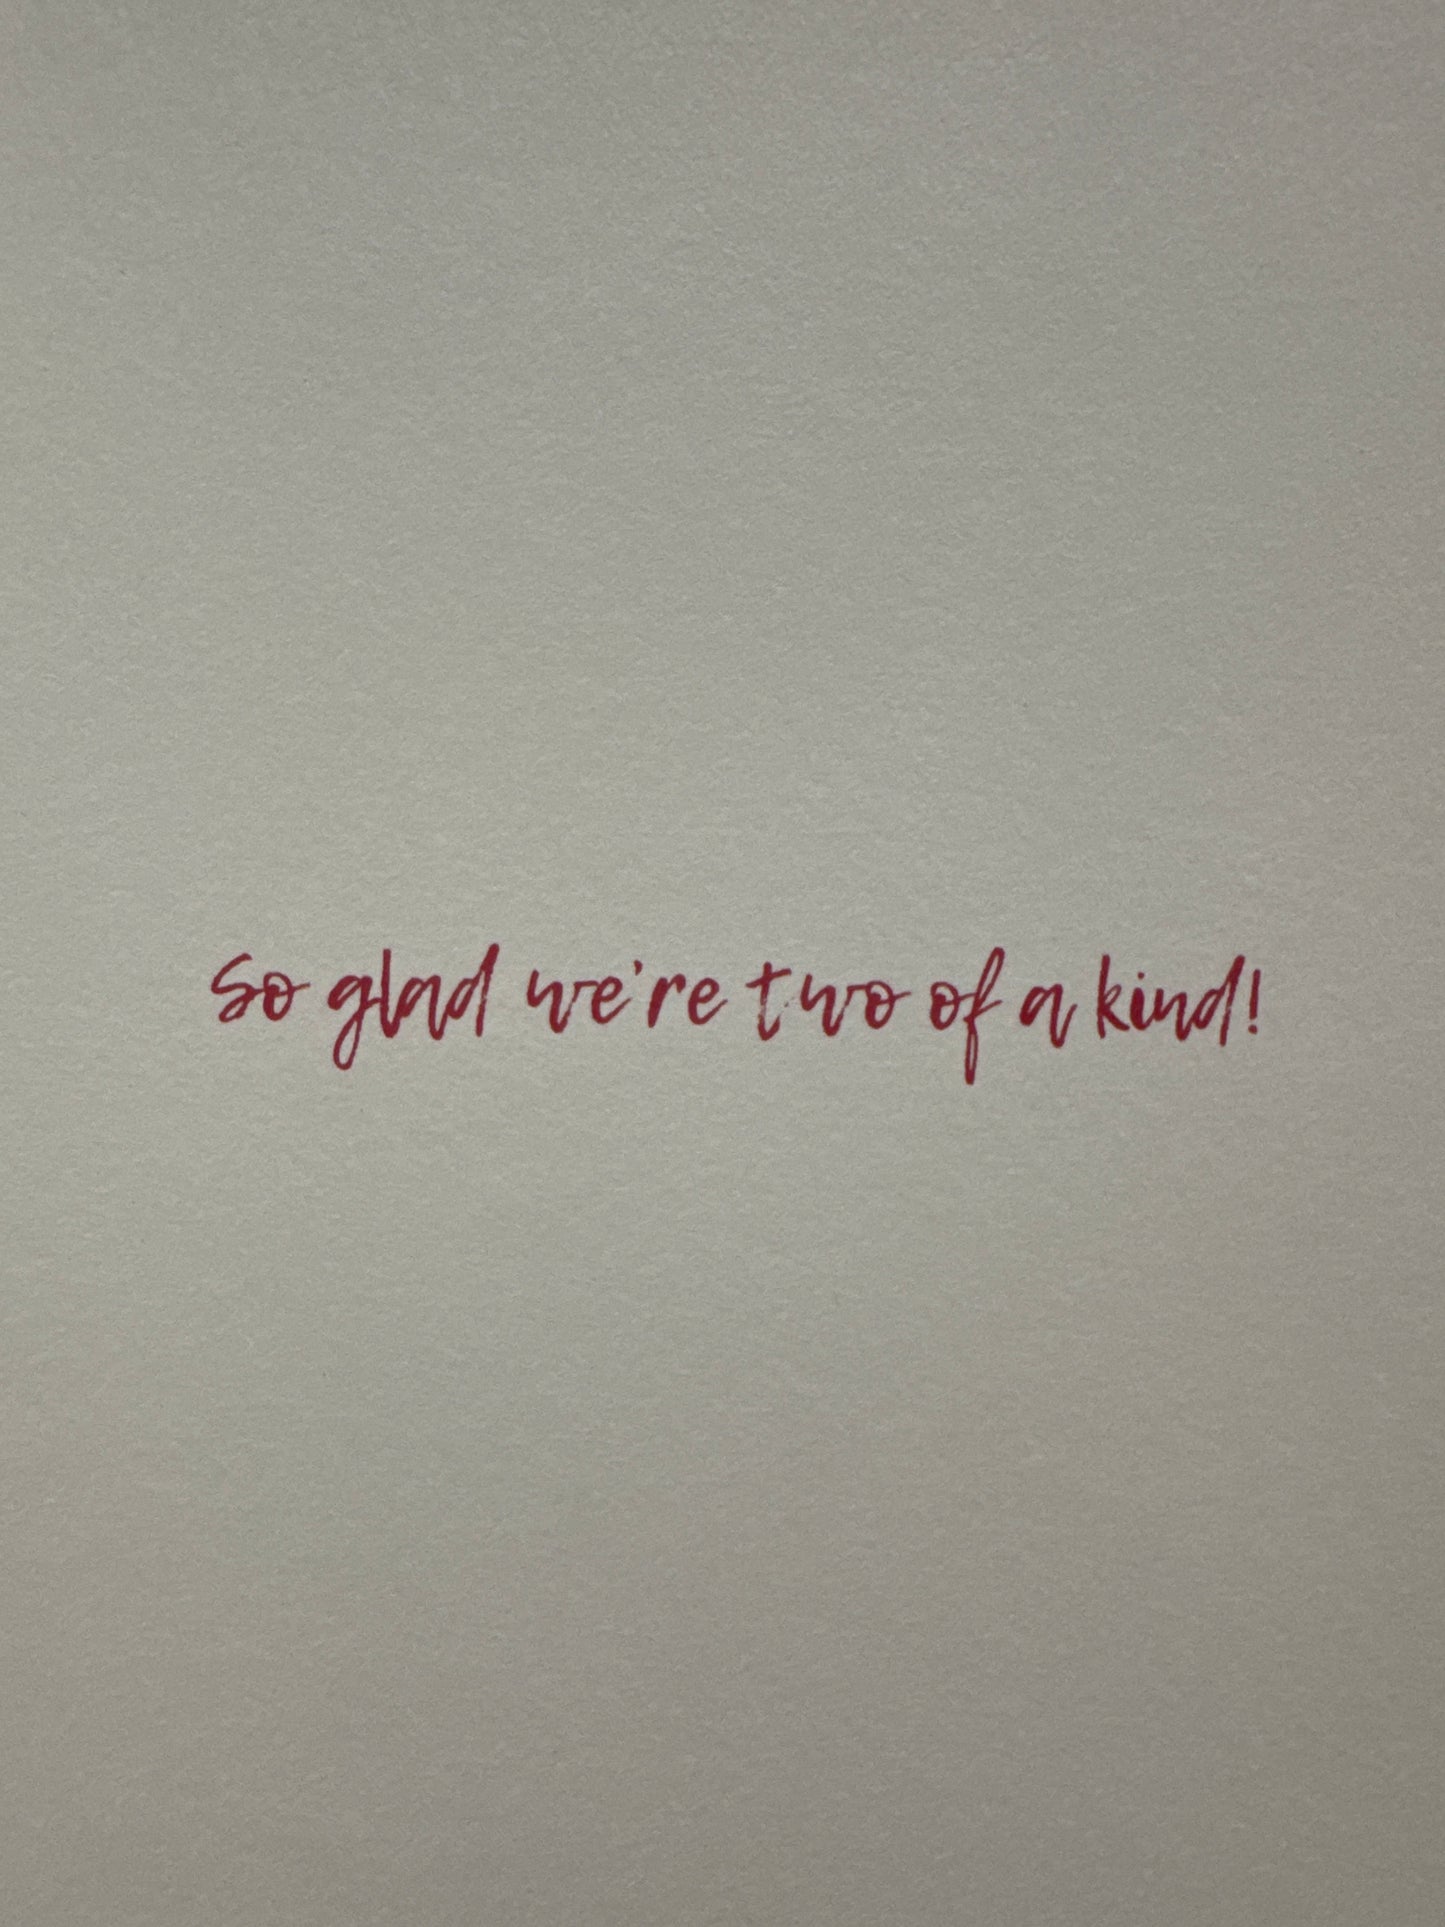 So glad we're two of a kind!